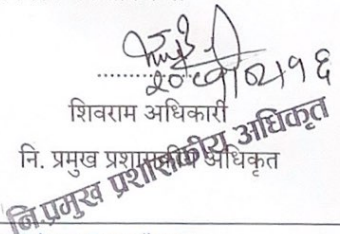 शिवराम अधिकारी
नि. प्रमुख प्रशासकीय अधिकृत
नि.प्रमुख प्रशासकीय अधिकृत